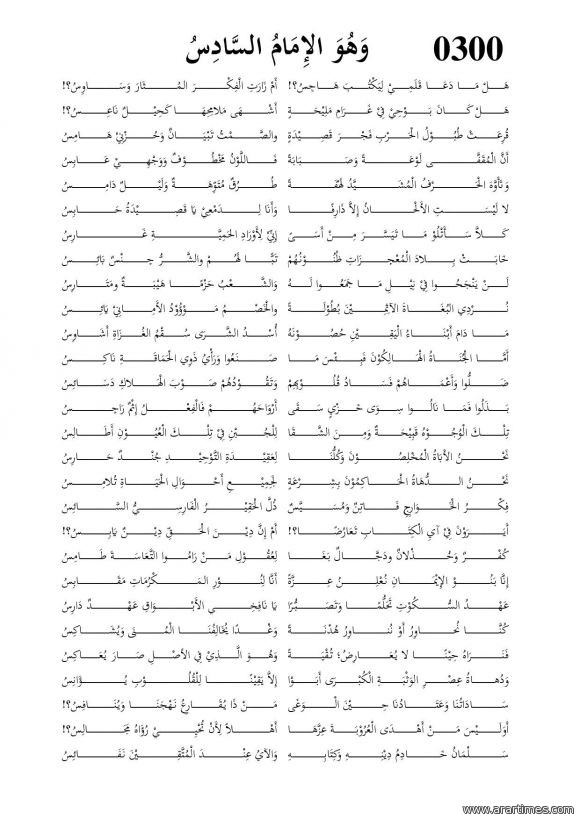 0300 وَهُوَ الإِمَامُ السَّادِسُ
هَلْ مَا دَعَا قَلَمِيْ لِيَكْتُبَ هَاجِسُ؟! أَمْ زَارَتِ الْفِكْرَ المُثَارَ وَسَاوِسُ؟!
هَلْ كَانَ بَوْحِيْ فِيْ غَرَامِ مَلِيْحَةٍ أَشْهَى مَلَامِحِهَا كَحِيْلٌ نَاعِسُ؟!
قُرِعَتْ طُبُوْلُ الْحَرْبِ فَجْرَ قَصِيْدَةٍ والصَّمْتُ تِبْيَانٌ وَحُزْنِيْ هَامِسُ
أَنَّ الْمُقَفَّى لَوْعَةً وَصَبَابَةً فَاللَّوْنُ مَخْطُوْفٌ وَوَجْهِيْ عَابِسُ
وَتَأَوَّهَ الْحَرْفُ الْمُشَيَّدُ لَهْفَةً طُرُقٌ مُتَوَّهَةٌ وَلَيْلٌ دَامِسُ
لا لَيْسَتِ الأَلْحَانُ إِلاَّ ذَارِفًا وَأَنَا لِدَمْعِيْ يَا قَصِيْدَةُ حَابِسُ
كَلاَّ سَأَتْلُوْ مَا تَيَسَّرَ مِنْ أَسَىً إِنِّيْ لِأَوْرَادِ الْحَمِيَّةِ غَارِسُ
خَابَتْ بِبِلادِ الْمُعْجِزَاتِ ظُنُوْنُهُمْ تَبًّا لَهُمْ والشَّرُّ جِنْسٌ بَائِسُ
لَنْ يَنْجَحُوا فِيْ نَيْلِ مَا جَمَعُوا لَهُ وَالشَّعْبُ حَزْمًا هَيْبَةٌ وَمَتَارِسُ
نُرْدِي الْبُغَاةَ الآثِمِيْنَ بُطُوْلَةً والْخَصْمُ مَوْؤُوْدُ الأَمَانِيْ يَائِسُ
مَا دَامَ أَبْنَاءُ الْيَقِيْنِ حُصُوْنَهُ أُسْدُ الشَّرَى سُقْمُ الْغُزَاةِ أَشَاوِسُ
أَمَّا الْجُنَاةُ الْهَالِكُوْنَ فَبِئْسَ مَا صَنَعُوا وَرَأْيُ ذَوِي الْحَمَاقَةِ نَاكِسُ
ضَلُّوا وَأَعْمَاهُمْ فَسَادُ قُلُوْبِهِمْ وَتَقُوْدُهُمْ صَوْبَ الْهَلاكِ دَسَائِسُ
بَذَلُوا فَمَا نَالُوا سِوَى خِزْيٍ سَقَى أَرْوَاحَهُمْ فَالْفِعْلُ إِثْمٌ رَاجِسُ
تِلْكَ الْوُجُوْهُ قَبِيْحَةٌ وَمِنَ الشَّقَا لِلْجُبْنِ فِيْ تِلْكَ الْعُيُوْنِ أَطَالِسُ
نَحْنُ الأُبَاةُ الْمُخْلِصُوْنَ وَكُلُّنَا لِعَقِيْدَةِ التَّوْحِيْدِ جُنْدٌ حَارِسُ
نَحْنُ الدُّهَاةُ الْحَاكِمُوْنَ بِشِرْعَةٍ لِجَمِيْعِ أَحْوَالِ الْحَيَاةِ تُلامِسُ
فِكْرُ الْخَوَارِجِ فَاتِنٌ وَمُسَيَّسٌ ذُلَّ الْحَقِيْرُ الْفَارِسِيُّ السَّائِسُ
أَيَرَوْنَ فِيْ آيِ الْكِتَابِ تَعَارُضًا؟! أَمْ إِنَّ دِيْنَ الْحَقِّ دِيْنٌ يَابِسُ؟!
كُفْرٌ وَخُذْلانٌ وَدَجَّالٌ بَغَا لِعُقُوْلِ مَنْ رَامُوا التَّعَاسَةَ طَامِسُ
إِنَّا بَنُوْ الإِيْمَانِ نُعْلِنُ عِزَّةً أَنَّا لِنُوْرِ المَكْرُمَاتِ مَقَابِسُ
عَهْدُ السُّكُوْتِ تَحَلُّمًا وَتَصَبُّرًا يَا نَافِخِيْ الأَبْوَاقِ عَهْدٌ دَارِسُ
كُنَّا نُحَاوِرُ أَوْ نُنَاوِرُ هُدْنَةً وَغْدًا يُخَالِفُنَا الْمُنَى وَيُشَاكِسُ
فَنَرَاهُ حِيْنًا لا يُعَارِضُ؛ تُقْيَةً وَهُوَ الَّذِيْ فِي الأَصْلِ صَارَ يُعَاكِسُ
وَدُهَاةُ عِصْرِ الوَثْبَةِ الْكُبْرَى أَبَوْا إِلاَّ يَقِيْنًا لِلْقُلُوْبِ يُؤَانِسُ
سَادَاتُنَا وَعَتَادُنَا حِيْنَ الْوَغَى مَنْ ذَا يُقَارِعُ نَهْجَنَا وَيُنَافِسُ؟!
أَوَلَيْسَ مَنْ أَهْدَى الْعُرُوْبَةَ عِزَّهَا أَهْلاً لِأَنْ تُحْيِيْ رُؤَاهُ مَجَالِسُ؟!
سَلْمَانُ خَادِمُ دِيْنِهِ وَكِتَابِهِ وَالآيُ عِنْدَ الْمُتَّقِيْنَ نَفَائِسُ
www.arartimes.com